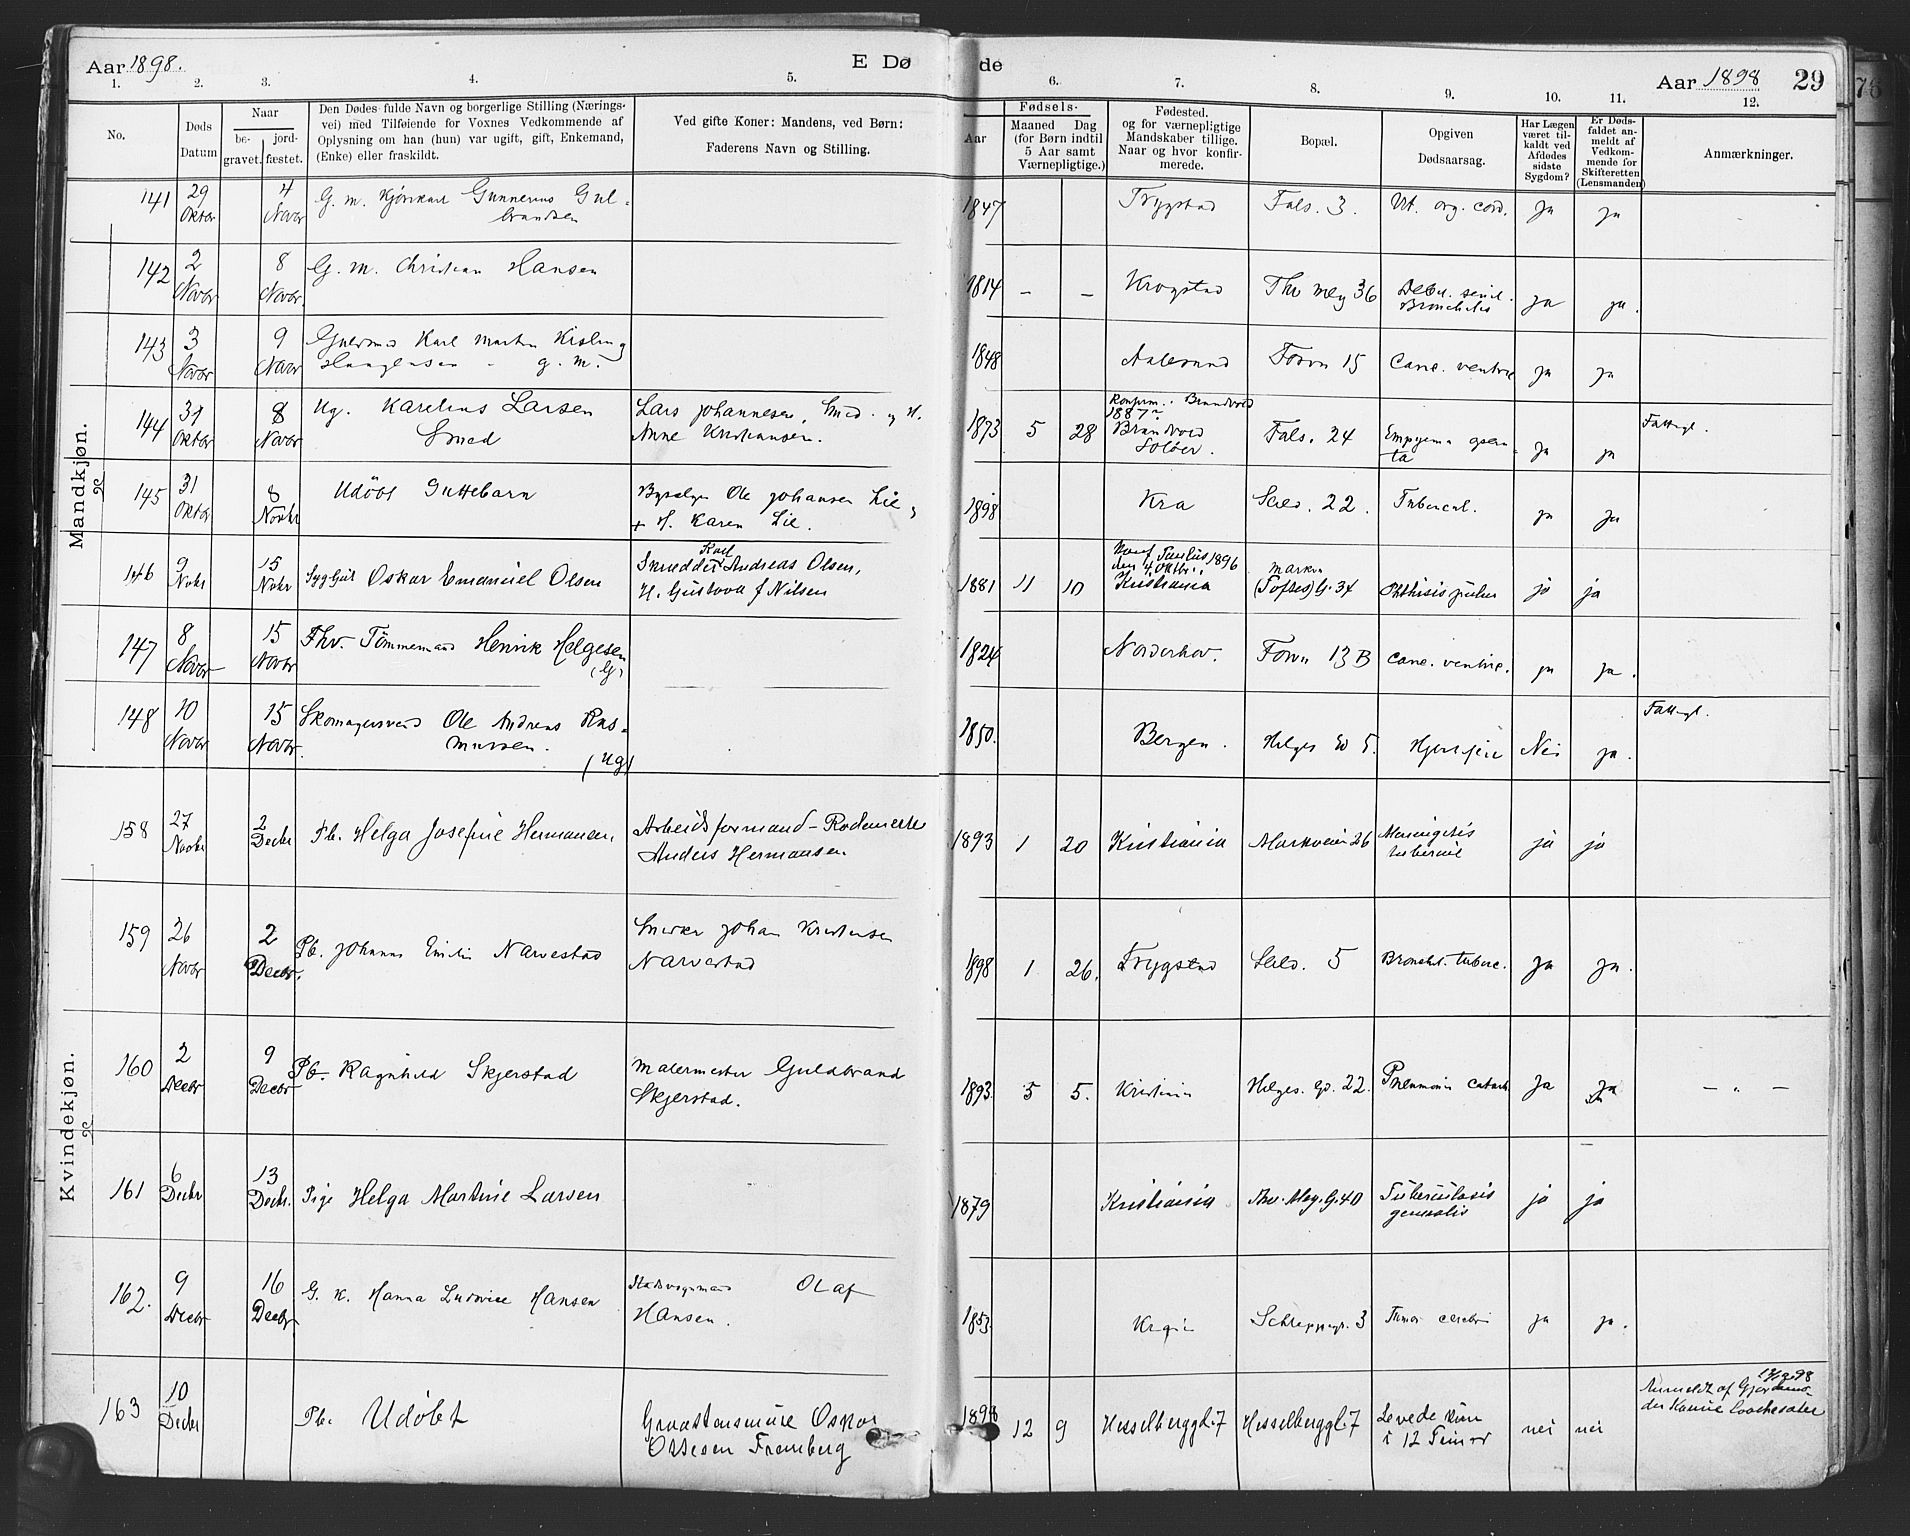 Aar 1898.
E Dø
de
Aar 1898
29
76
1. 2. 3. 4. 5. 6. 7. 8. 9. 10. 11. 12.
No.
Døds
Datum
Naar
be-
gravet.
jord-
fæstet.
Den Dødes fulde Navn og borgerlige Stilling (Nærings-
vei) med Tilføiende for Voxnes Vedkommende af
Oplysning om han (hun) var ugift, gift, Enkemand,
(Enke) eller fraskildt.
Ved gifte Koner: Mandens, ved Børn:
Faderens Navn og Stilling.
Fødsels-
Aar
Maaned Dag
(for Børn indtil
5 Aar samt
Værnepligtige.)
Fødested.
og for værnepligtige
Mandskaber tillige.
Naar og hvor konfir-
merede.
Bopæl.
Opgiven
Dødsaarsag.
Har Lægen
været til-
kaldt ved
Afdødes
sidste
Sygdom?
Er Døds-
faldet an-
meldt af
Vedkom-
mende for
Skifteretten
(Lensmanden)
Anmærkninger.
Mandkjøn.
141 29 Oktbr 4 Novbr G. m. Kjørekarl Gunnerius Gul-
brandsen
1847 Trygstad Fals. 3. Vit. org. cord. ja ja
142 2 Novbr 8 Novbr G. m. Christian Hansen
1814 – – Krogstad Thv Meg 36 Debil. senil.
Bronchitis ja ja.
143 3 Novbr 9 Novbr Karl Martin
g. m.
1848 Aalesund Fosv 15 Canc. ventric ja ja
144 31 Oktbr 8 Novbr Ug. Karelius Larsen
Smed
Lars Johannesen, Smed. og H.
Anne Kristiansen.
1873 5 28 Konfirm. i Brandvold
1887
Brandvold
Soløer.
Fals. 24 Empyema
ja ja Fattigl.
145 31 Oktbr 8 Novbr Udøbt Guttebarn
Ole Johansen Lie
+ H. Karen Lie.
1898 Kra Seld. 22. Tubercul. ja ja
146 9 Novbr 15 Novbr Oskar Emanuel Olsen
Karl
Snedder Andreas Olsen,
H. Gustava f Nilsen
1881 11 10 Konf Paulus 1896
den 4 Oktbr.
Kristiania
Marken
(Toftes) G. 34 Phthisis pulm ja ja
147 8 Novbr 15 Novbr Fhv. Tømmermand Henrik Helgesen
(G)
1824 Norderhov. Fosv 13 B Canc. ventric. ja ja.
148 10 Novbr 15 Novbr Skomagersvend Ole Andreas Ras-
mussen.
(ug)
1850. Bergen. Helges Gd 5. Hjertefeil Nei ja. Fattigl.
Kvindekjøn.
158 27 Novbr 2 Decbr Pb. Helga Josefine Hermansen,
Arbeidsformand - Rodemester
Anders Hermansen
1893 1 20 Kristiania Markveien 26 Meningitis
tubercul ja ja
159 26 Novbr 2 Decbr. Pb. Johanne Emilie Narvestad
Snedker Johan Kristensen
Narvestad
1898 1 26. Trygstad Seld. 5 Bronchit. tuberc. ja ja.
160 2 Decbr 9 Decbr Pb. Ragnhild Skjerstad
Malermester Guldbrand
Skjerstad.
1893. 5 5. Kristiania Helges. Gd. 22. Pneumoni catarrh ja ja – „ –
161 6 Decbr 13 Decbr. Pige Helga Martine Larsen
1879 Kristiania Thv. Meg. G. 40 Tuberculosis
generalis ja ja
162. 9 Decbr 16 Decbr G. K. Hanna Ludovice Hansen
Stadsvognmand Olaf
Hansen.
1853. 3 Tumor cerebri ja ja.
163 10 Decbr Pb. Udøbt
Graastensmurer Oskar
Ottesen Fremberg
1898 12 9 Hesselberggd. 7 Hesselberggd. 7 Levede kun
i 12 Timer nei nei
Anmeldt af Gjordemo-
der